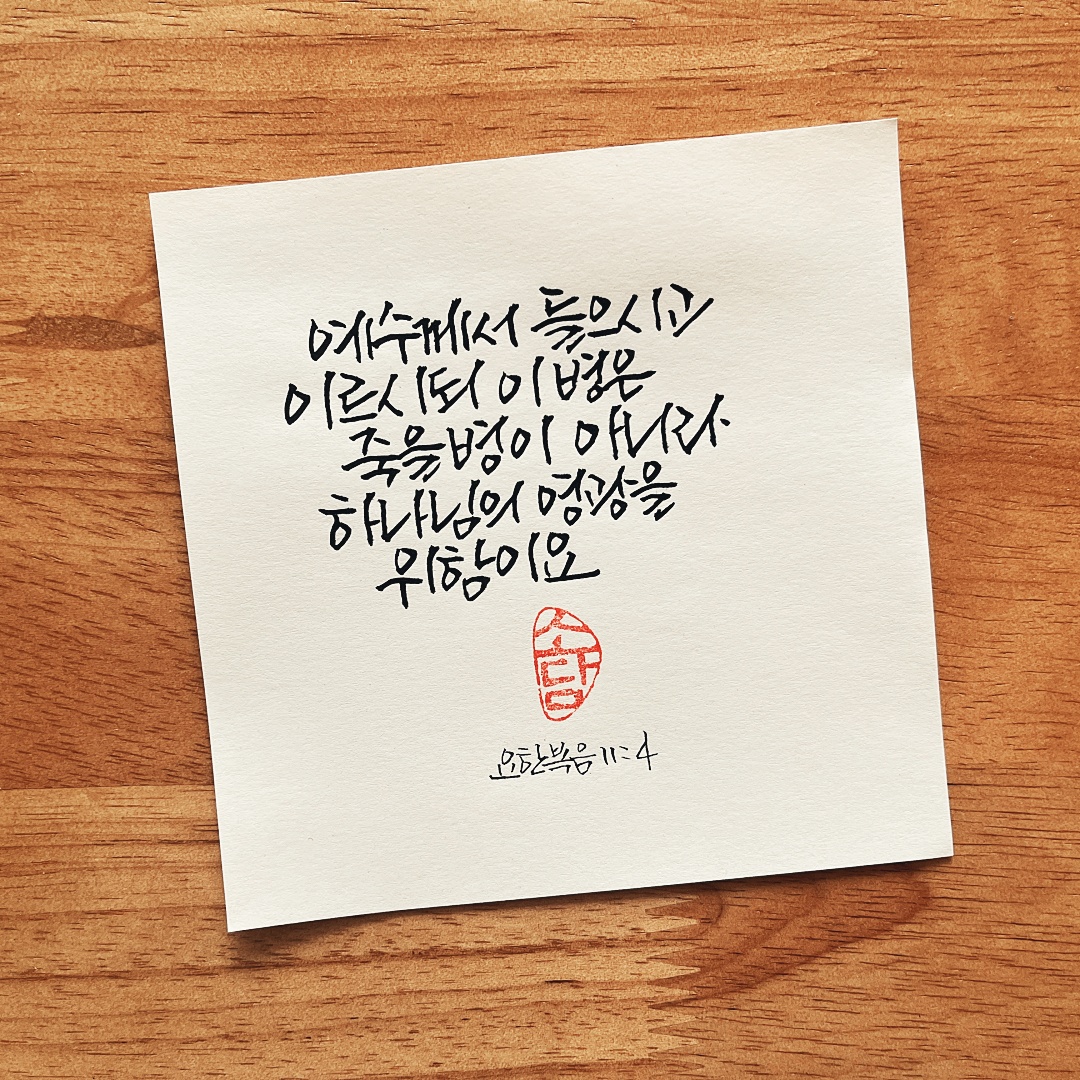 예수께서 들으시고
이르시되 이 병은
죽을병이 아니라
하나님의 영광을
위함이요
소담
요한복음 11:4